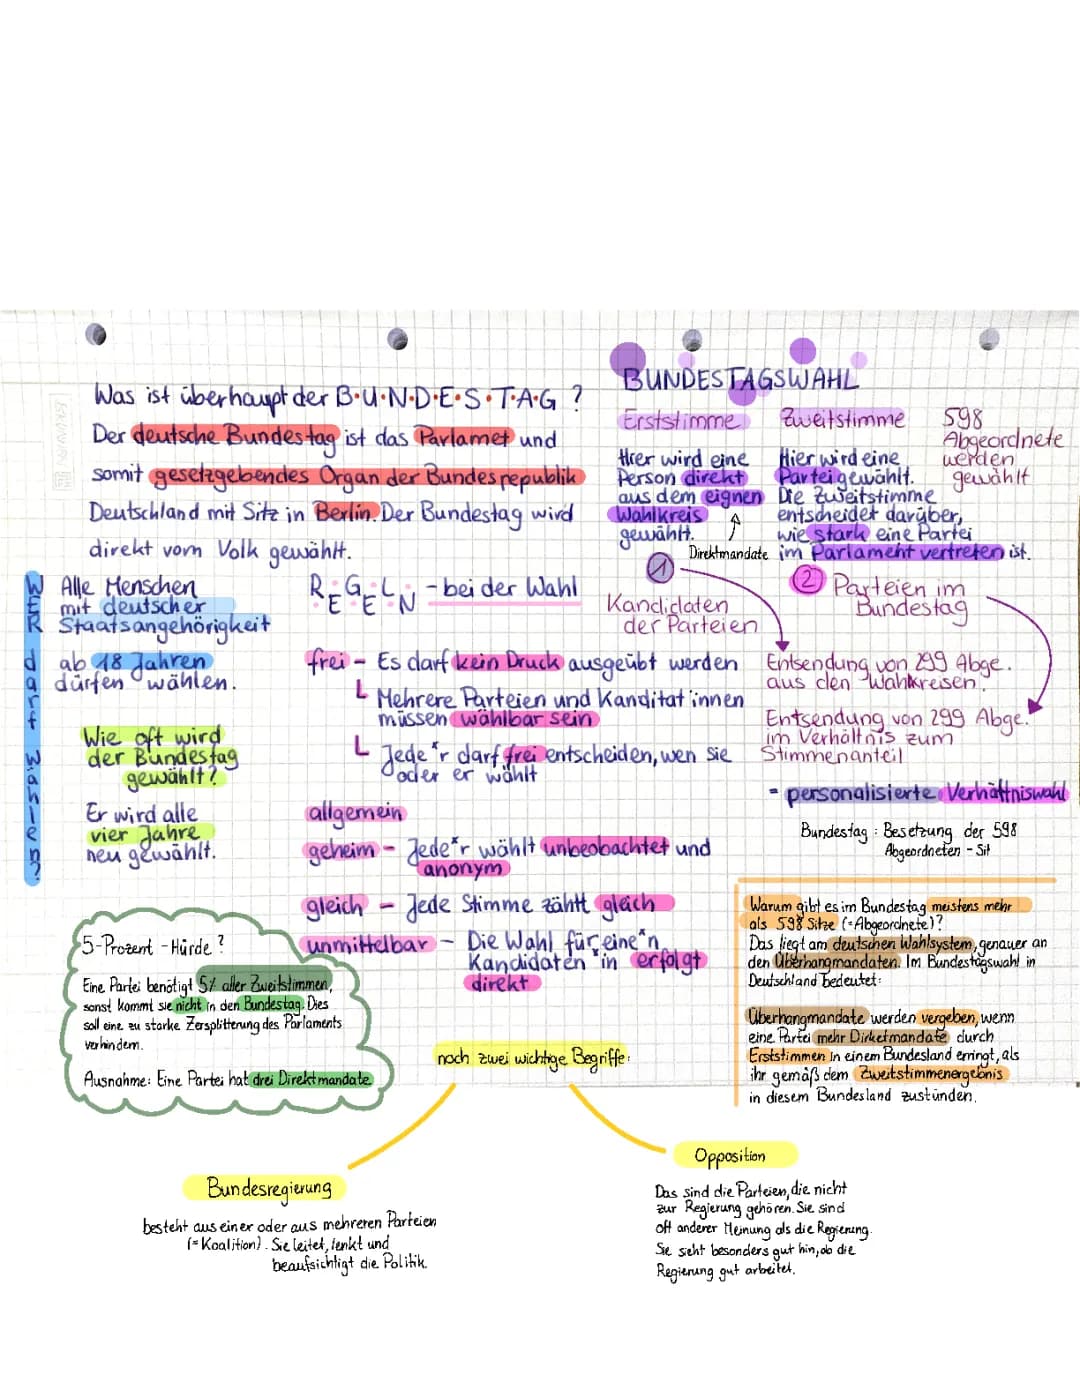 Was ist überhaupt der B·U·N·D·E·S·T·A·G ?
Der deutsche Bundestag ist das Parlamet und
somit gesetzgebendes Organ der Bundesrepublik
Deutschland mit Sitz in Berlin. Der Bundestag wird
direkt vom Volk gewählt.
WER darf wählen?
Alle Menschen
mit deutscher
Staatsangehörigkeit
ab 18 Jahren
dürfen wählen.
Wie oft wird
der Bundestag
gewählt?
Er wird alle
vier Jahre
neu gewählt.
REGELN - bei der Wahl
frei - Es darf kein Druck ausgeübt werden
Mehrere Parteien und Kanditat*innen
müssen wählbar sein
Jede*r darf frei entscheiden, wen sie
oder er wählt
allgemein
geheim - Jede*r wählt unbeobachtet und
anonym
gleich - Jede Stimme zählt gleich
unmittelbar - Die Wahl für eine*n
Kandidaten*in erfolgt
direkt
5-Prozent-Hürde?
Eine Partei benötigt 5% aller Zweitstimmen,
sonst kommt sie nicht in den Bundestag. Dies
soll eine zu starke Zersplitterung des Parlaments
verhindern.
Ausnahme: Eine Partei hat drei Direktmandate
BUNDESTAGSWAHL
Erststimme
Hier wird eine
Person direkt
aus dem eignen
Wahlkreis
gewählt.
Direktmandate
Zweitstimme
Hier wird eine
Partei gewählt.
Die Zweitstimme
entscheidet darüber,
wie stark eine Partei
im Parlament vertreten ist.
598
Abgeordnete
werden
gewählt
1
Kandidaten
der Parteien
2 Parteien im
Bundestag
Entsendung von 299 Abge.
aus den Wahlkreisen.
Entsendung von 299 Abge.
im Verhältnis zum
Stimmenanteil
= personalisierte Verhältniswahl
Bundestag: Besetzung der 598
Abgeordneten - Sit
Warum gibt es im Bundestag meistens mehr
als 598 Sitze (=Abgeordnete)?
Das liegt am deutschen Wahlsystem, genauer an
den Überhangmandaten. Im Bundestagswahl in
Deutschland bedeutet:
Überhangmandate werden vergeben, wenn
eine Partei mehr Dirketmandate durch
Erststimmen in einem Bundesland erringt, als
ihr gemäß dem Zweitstimmenergebnis
in diesem Bundesland zustünden.
noch zwei wichtige Begriffe:
Bundesregierung
besteht aus einer oder aus mehreren Parteien
(=Koalition). Sie leitet, lenkt und
beaufsichtigt die Politik.
Opposition
Das sind die Parteien, die nicht
zur Regierung gehören. Sie sind
oft anderer Meinung als die Regierung.
Sie sieht besonders gut hin, ob die
Regierung gut arbeitet.